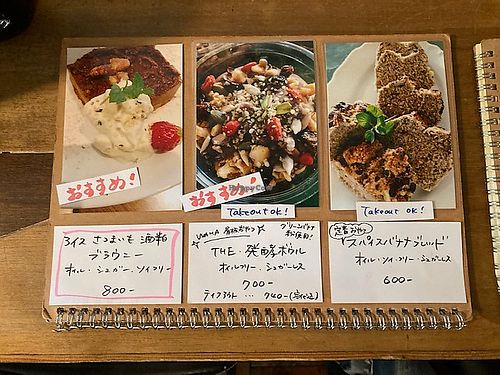 おすすめ!
おすすめ!
Takeout ok!
Takeout ok!
さつまいも 酒粕
ブラウニー
オイル・シュガー・ソイフリー
800-
THE・発酵ボウル
オイルフリー・シュガーレス
700-
テイクアウト … 740-
定番おやつ
スパイスバナナブレッド
オイル・ソイフリー・シュガーレス
600-